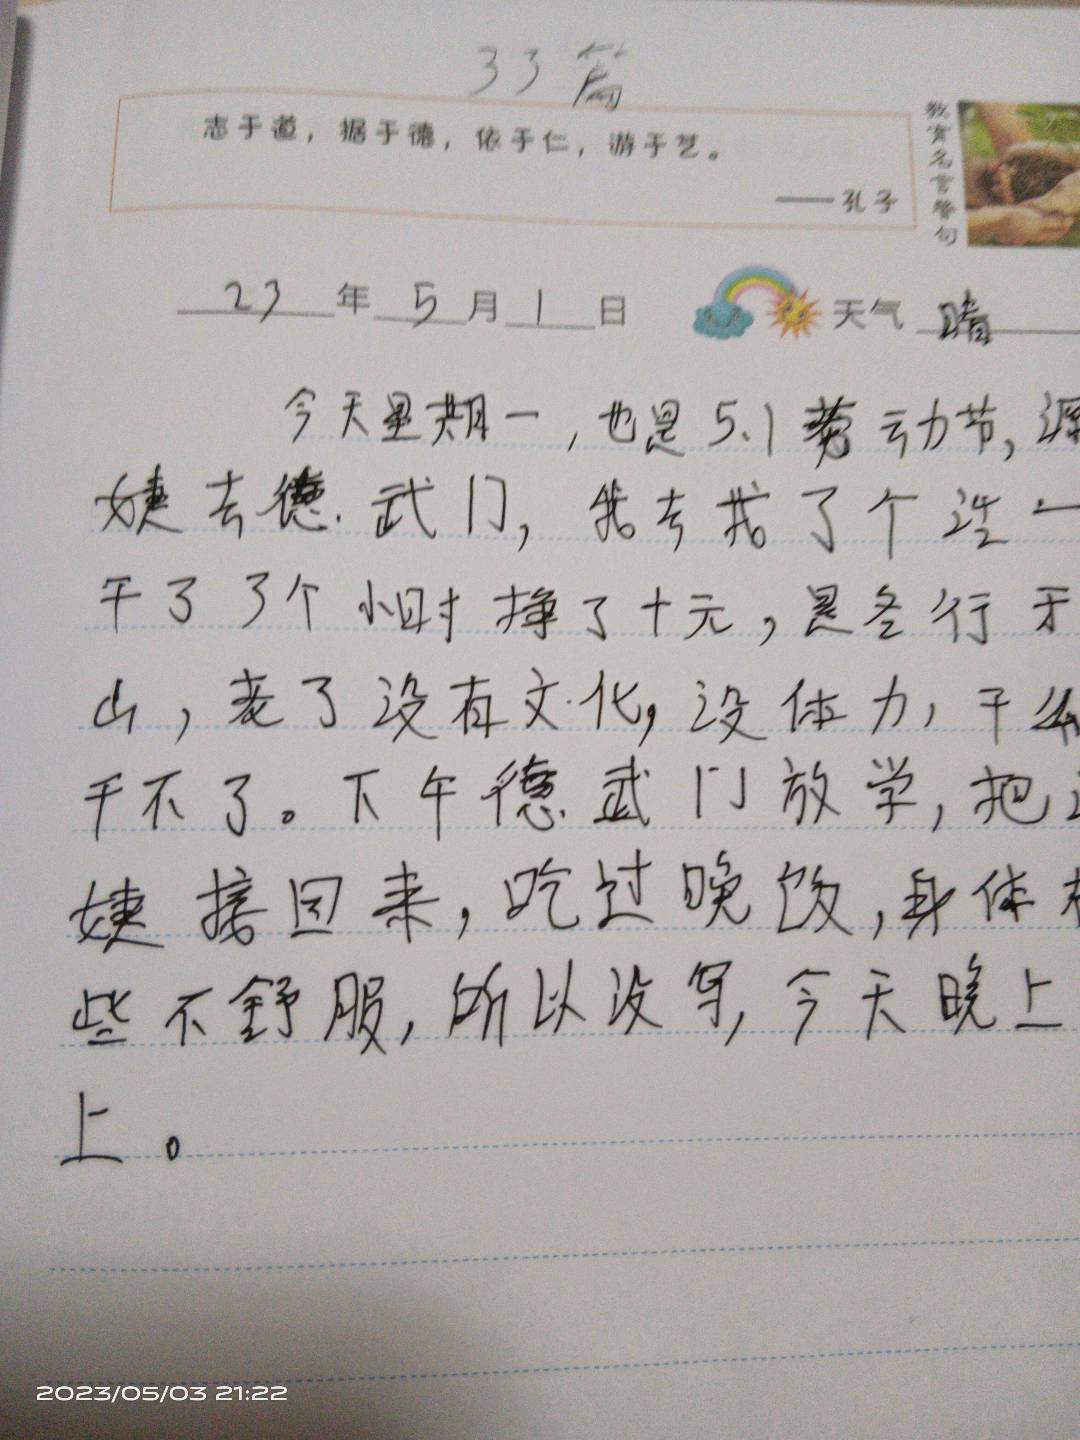 33篇
志于道，据于德，依于仁，游于艺。
——孔子
教育名言警句
23年5月1日 天气 晴
今天星期一，也是5.1劳动节，源
婕去德武门，我去找了个
干了3个小时挣了十元，是冬行
山，老了没有文化，没体力，干么
干不了。下午德武门放学，把
婕接回来，吃过晚饭，身体
些不舒服，所以没写，今天晚上
上。
2023/05/03 21:22